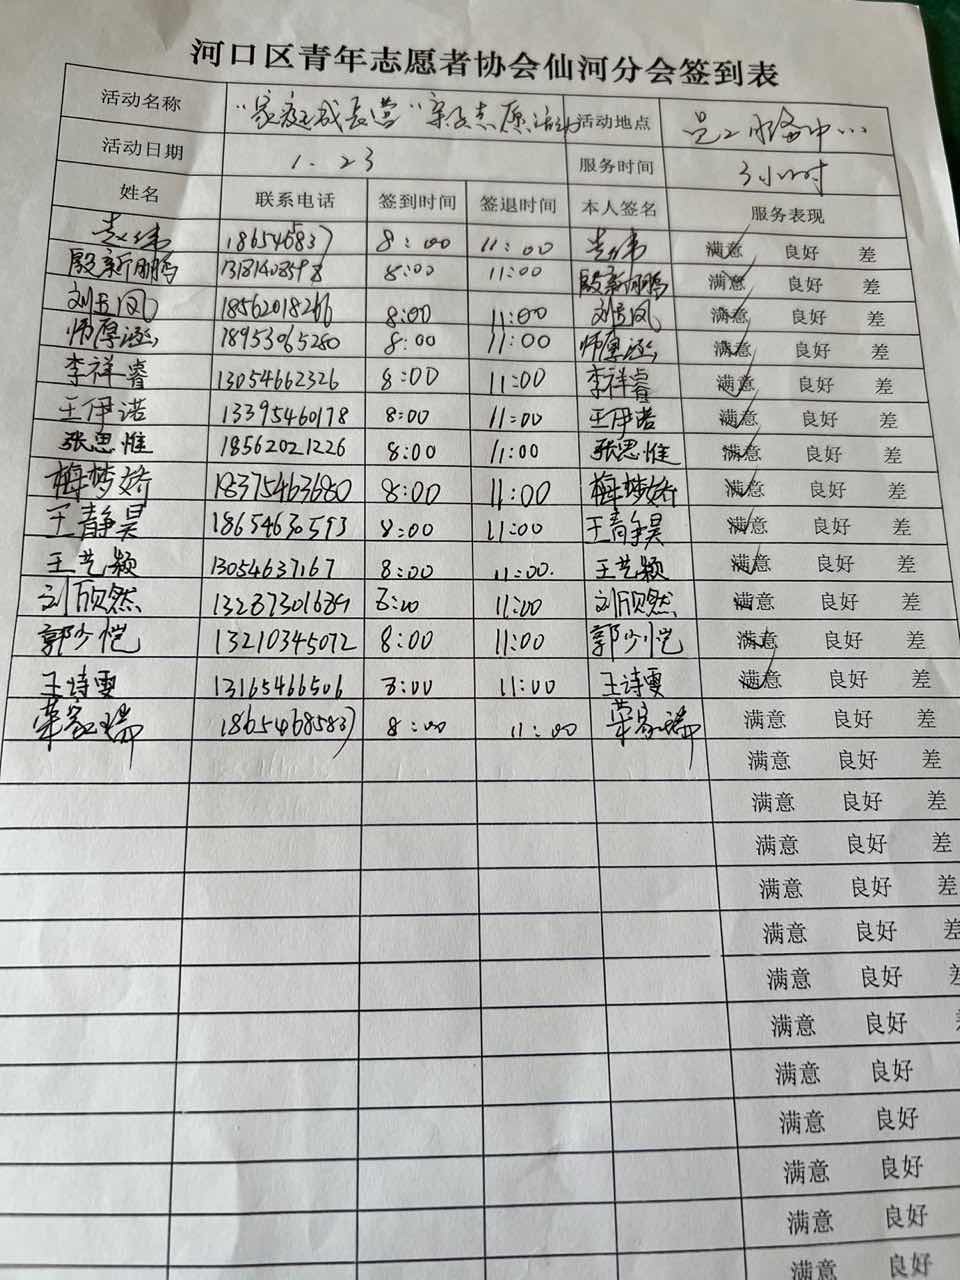 河口区青年志愿者协会仙河分会签到表
活动名称 "家庭成长营"亲子志愿活动 活动地点 员工服务中心
活动日期 1.23 服务时间 3小时
姓名 联系电话 签到时间 签退时间 本人签名 服务表现
赵伟 8:00 11:00 赵伟 满意 良好 差
殷新鹏 8:00 11:00 殷新鹏 满意 良好 差
刘玉凤 18562018266 8:00 11:00 刘玉凤 满意 良好 差
师厚涵 18953065280 8:00 11:00 师厚涵 满意 良好 差
李祥睿 13054662326 8:00 11:00 李祥睿 满意 良好 差
王伊诺 13395460178 8:00 11:00 王伊诺 满意 良好 差
张思惟 18562021226 8:00 11:00 张思惟 满意 良好 差
梅梦娇 8:00 11:00 梅梦娇 满意 良好 差
王静昊 18654630593 8:00 11:00 王静昊 满意 良好 差
王艺颖 13054637167 8:00 11:00. 王艺颖 满意 良好 差
刘欣然 8:00 11:00 刘欣然 满意 良好 差
郭少恺 13210345072 8:00 11:00 郭少恺 满意 良好 差
王诗雯 13165466506 8:00 11:00 王诗雯 满意 良好 差
荣家瑞 18654685837 8:00 11:00 荣家瑞 满意 良好 差
满意 良好 差
满意 良好 差
满意 良好 差
满意 良好 差
满意 良好 差
满意 良好 差
满意 良好
满意 良好
满意 良好
满意 良好
满意 良好
满意 良好